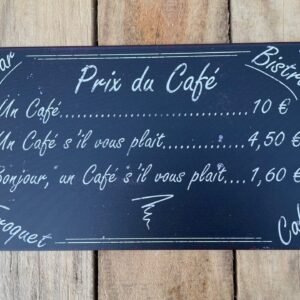 Bar
Bistro
Prix du Café
Un Café..............................10 €
Un Café s'il vous plait..............4,50 €
Bonjour, un Café s'il vous plait....1,60 €
Troquet
Café